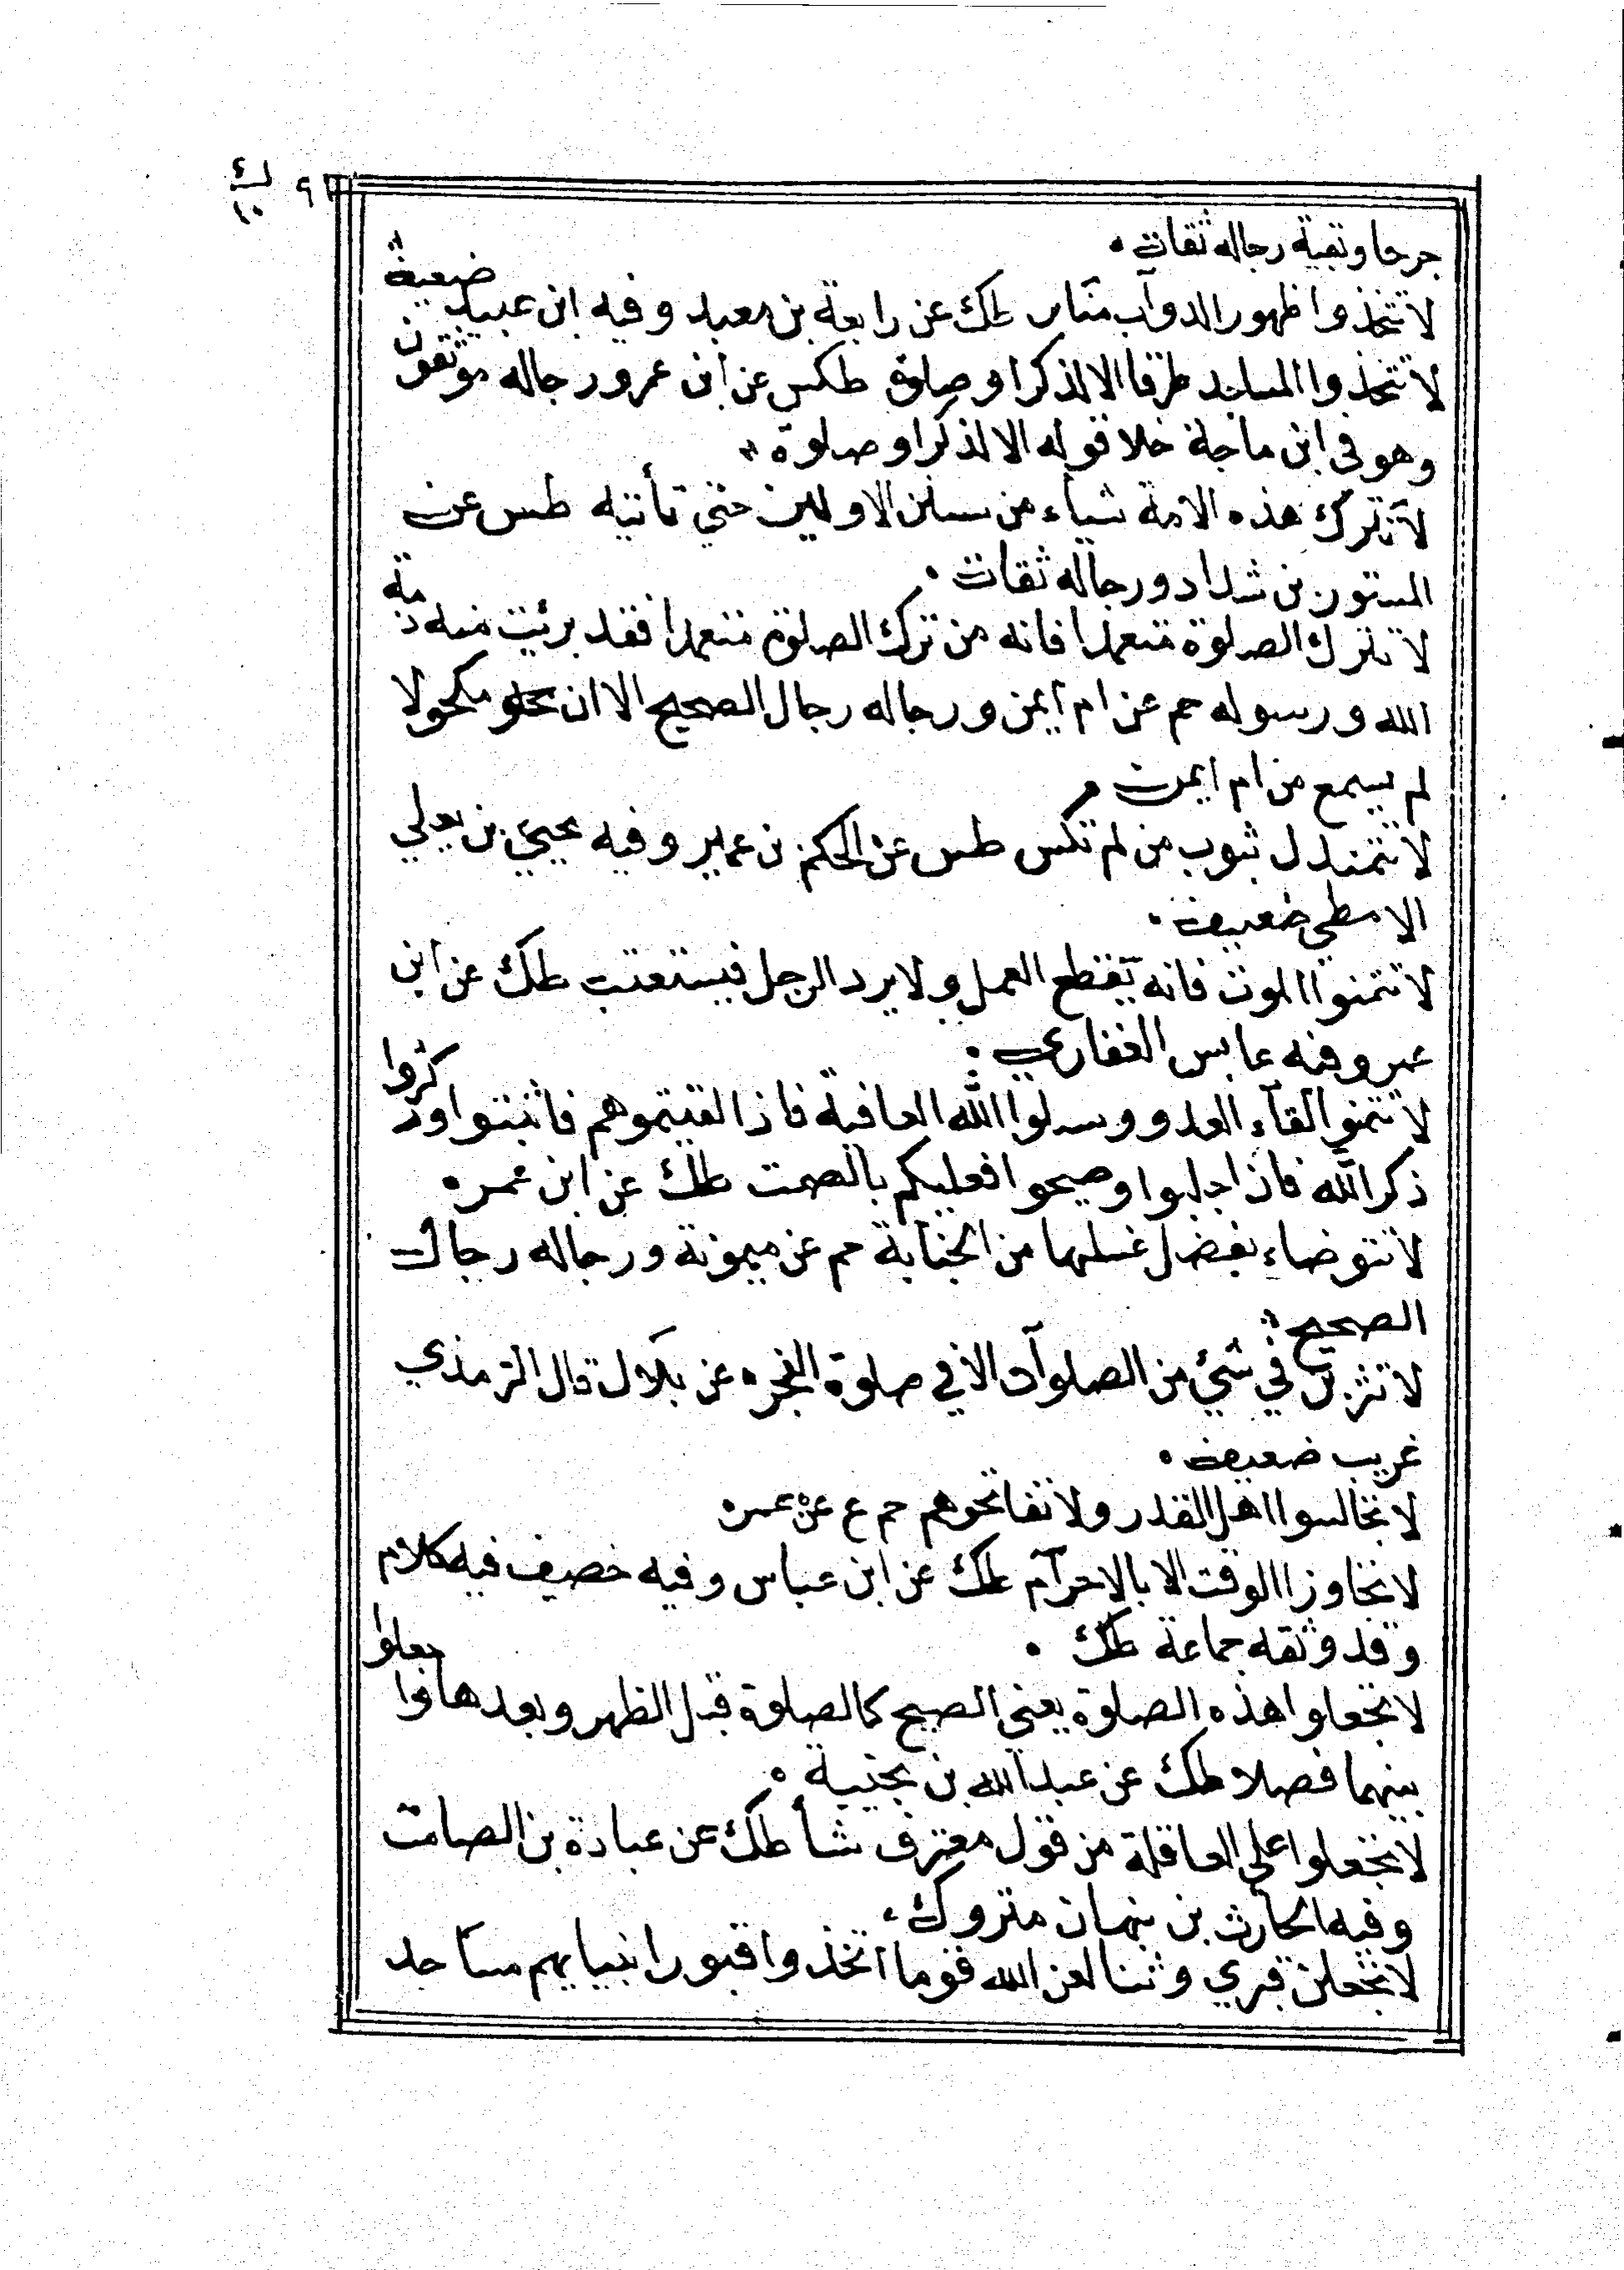 جرحا وبقية رجاله ثقات
لا تتخذوا ظهور الدواب منابر طك عن رابعة بن معبد وفيه ابن عبيد ضعيف
لا تتخذوا المساجد طرقا الا لذكر او صلوة طكس عن ابن عمر ورجاله موثقون
وهو في ابن ماجة خلا قوله الا لذكر او صلوة
لا تترك هذه الامة شياء من سنن الاولين حتي تأتيه طس عن
المستورد بن شداد ورجاله ثقات
لا تترك الصلوة متعمدا فانه من ترك الصلوة متعمدا فقد برئت منه ذمة
الله ورسوله حم عن ام ايمن ورجاله رجال الصحيح الا ان مكحولا
لم يسمع من ام ايمن
لا تتمندل بثوب من لم تكس طس عن الحكم بن عمير وفيه يحيي بن يعلي
الاسطي ضعيف
لا تتمنوا الموت فانه يقطع العمل ولا يرد الرجل فيستعتب طك عن ابن
عمر وفيه عابس الغفاري
لا تتمنوا لقآء العدو وسلوا الله العافية فاذا لقيتموهم فاثبتوا واكثروا
ذكر الله فاذا جلبوا وصيحوا فعليكم بالصمت طك عن ابن عمر
لا تتوضاء بفضل غسلها من الجنابة حم عن ميمونة ورجاله رجال
الصحيح
لا تثوبن في شئ من الصلوآت الا في صلوة الفجر ه عن بلال قال الترمذي
غريب ضعيف
لا تجالسوا اهل القدر ولا تفاتحوهم حم ع عن عمر
لا تجاوزا الوقت الا بالاحرآم طك عن ابن عباس وفيه خصيف فيه كلام
وقد وثقه جماعة طك
لا تجعلوا هذه الصلوة يعني الصبح كالصلوة قبل الظهر وبعدها واجعلوا
بينهما فصلا طك عن عبد الله بن بحينة
لا تجعلوا علي العاقلة من قول معترف شأ طك عن عبادة بن الصامت
وفيه الحارث بن نبهان متروك
لا تجعلن قبري وثنا لعن الله قوما اتخذوا قبور انبيايهم مساجد